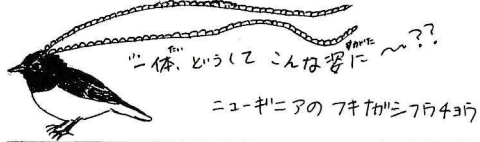 一体、どうして こんな姿に 〜??
ニューギニアの フキナガシフウチョウ